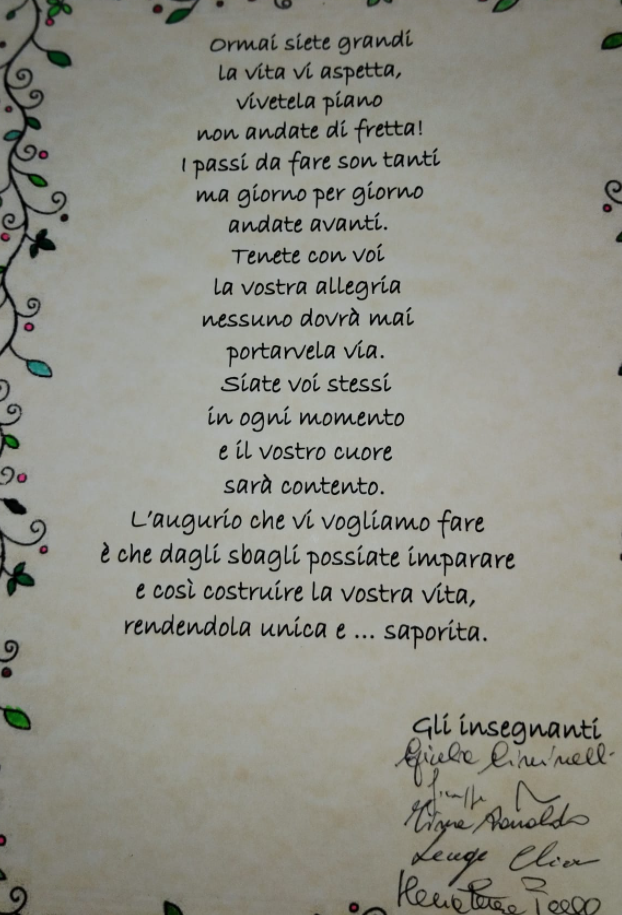 Ormai siete grandi
la vita vi aspetta,
vivetela piano
non andate di fretta!
I passi da fare son tanti
ma giorno per giorno
andate avanti.
Tenete con voi
la vostra allegria
nessuno dovrà mai
portarvela via.
Siate voi stessi
in ogni momento
e il vostro cuore
sarà contento.
L'augurio che vi vogliamo fare
è che dagli sbagli possiate imparare
e così costruire la vostra vita,
rendendola unica e ... saporita.
Gli insegnanti